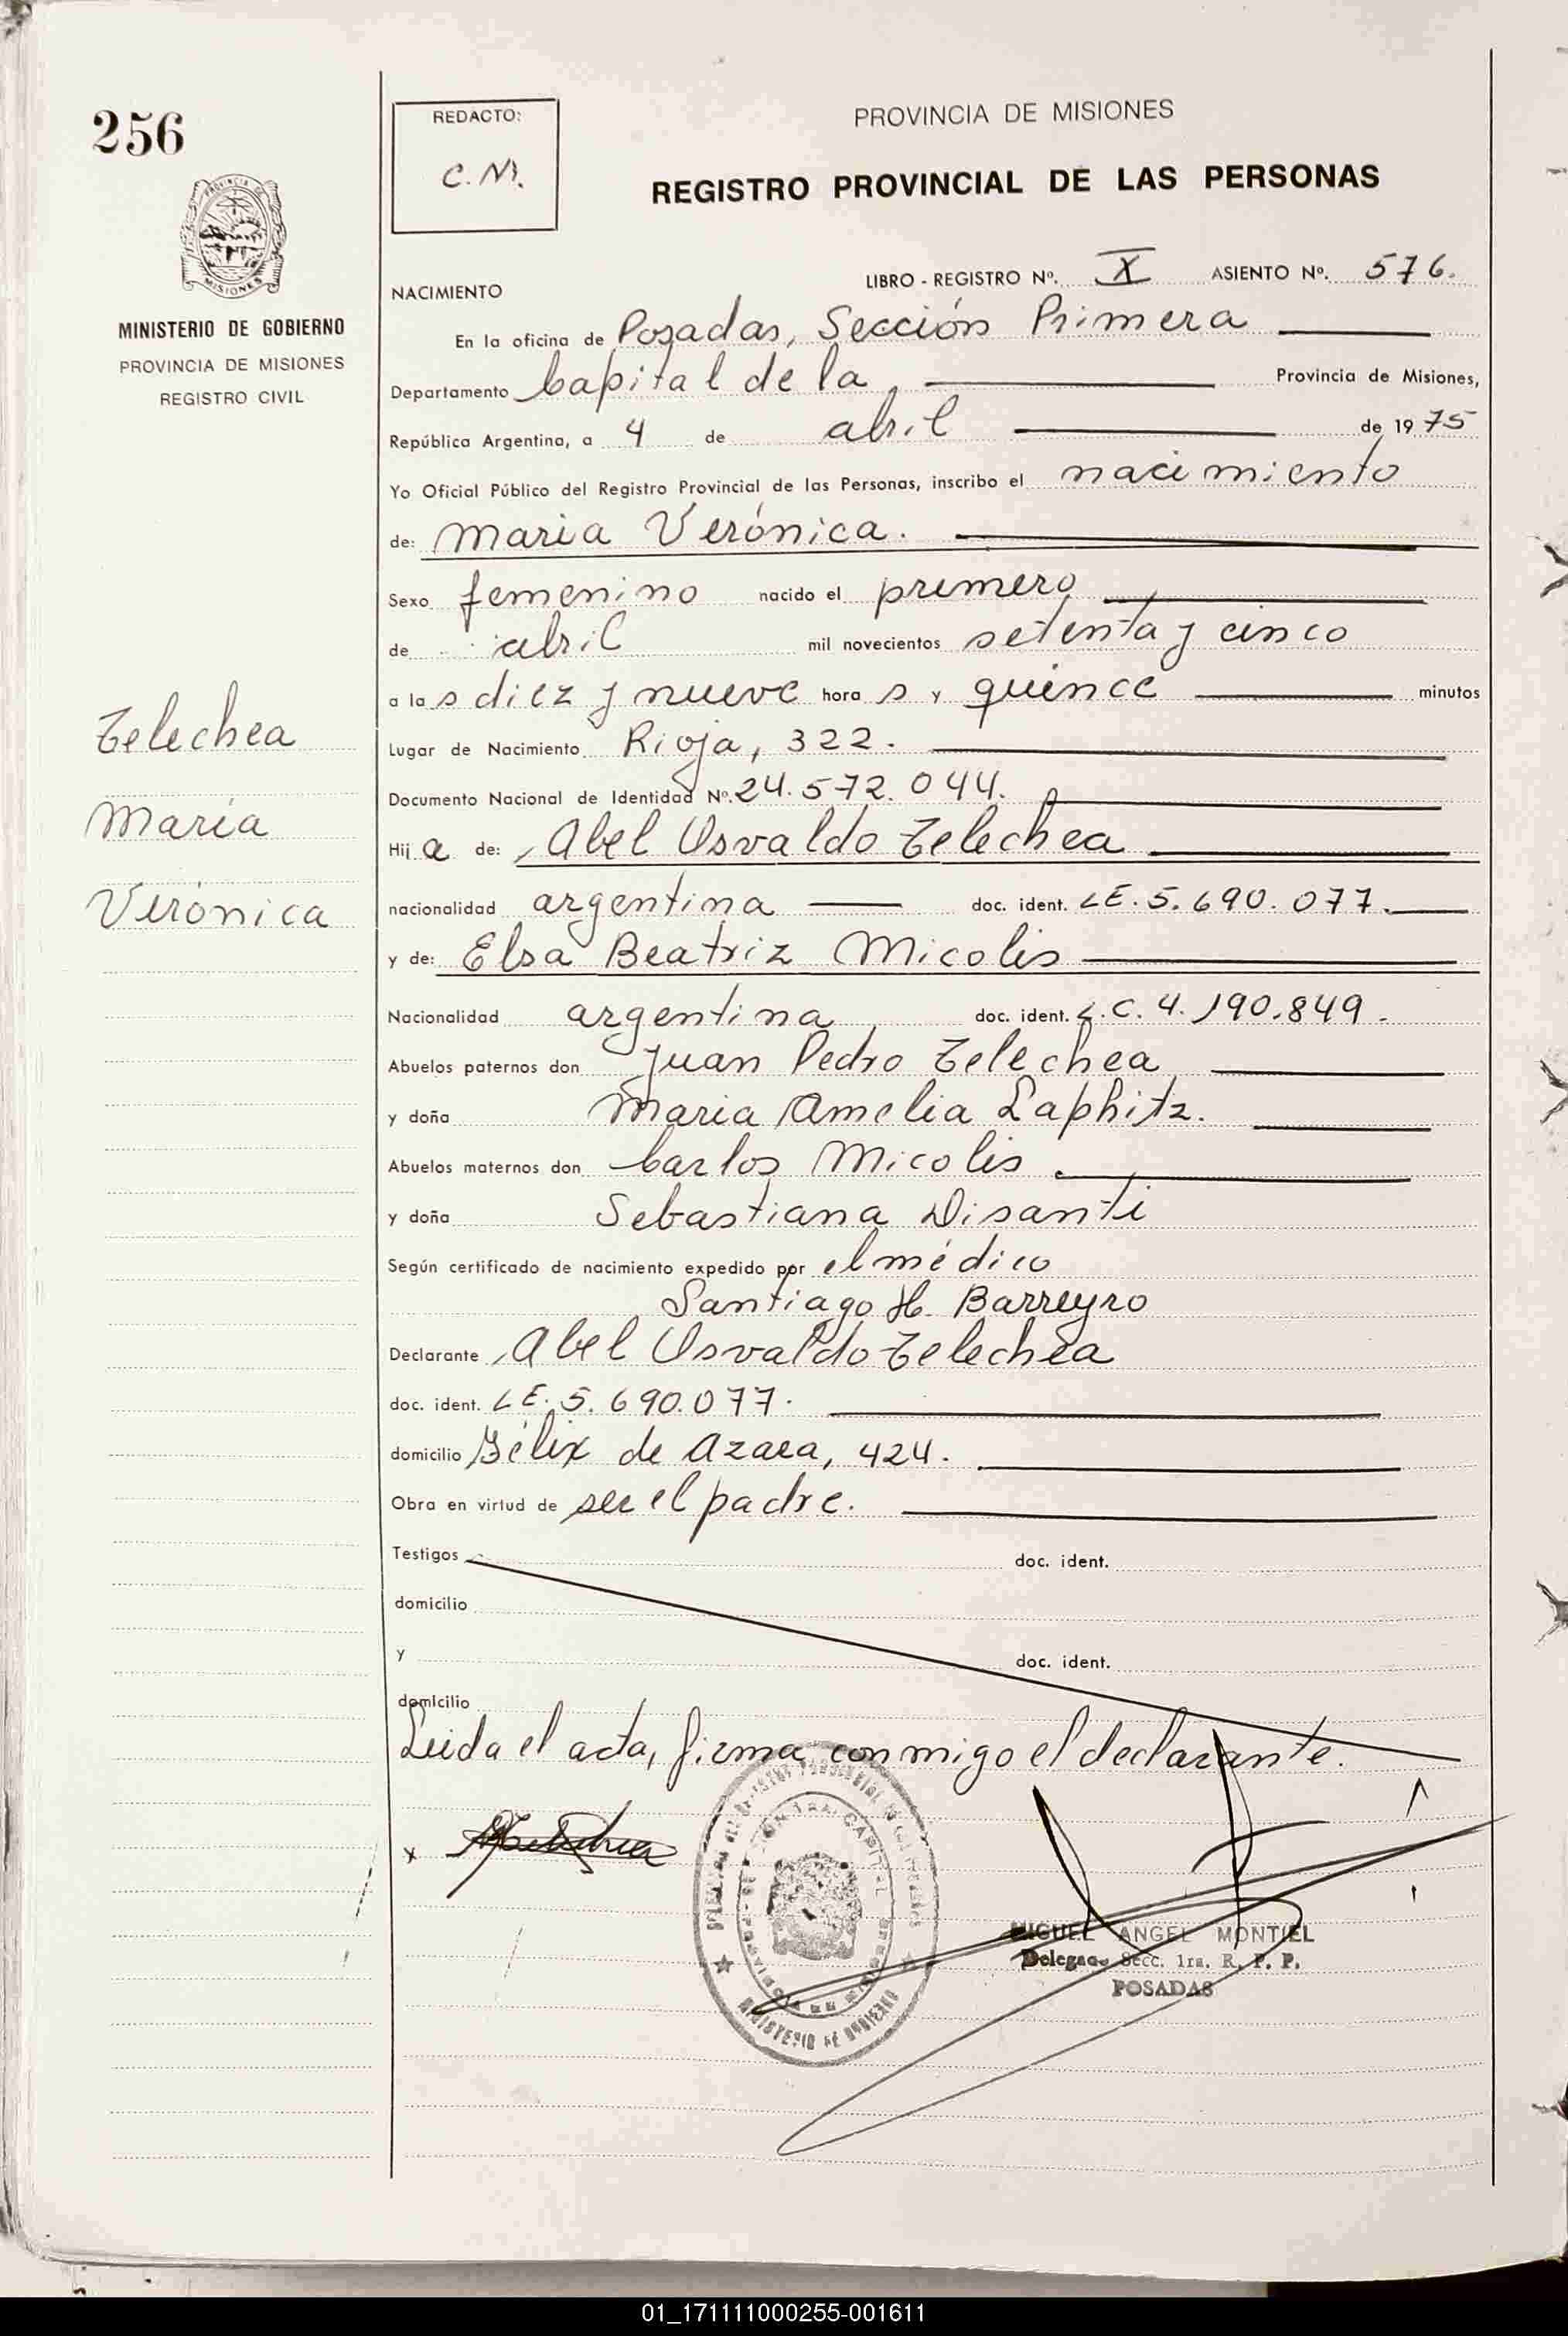 256
REDACTO:
C.M.
PROVINCIA DE MISIONES
REGISTRO PROVINCIAL DE LAS PERSONAS
MISIONES
MINISTERIO DE GOBIERNO
PROVINCIA DE MISIONES
REGISTRO CIVIL
NACIMIENTO
LIBRO - REGISTRO Nº. X ASIENTO Nº. 576.
En la oficina de Posadas, Sección Primera
Departamento Capital de la, Provincia de Misiones,
República Argentina, a 4 de abril de 1975
Yo Oficial Público del Registro Provincial de las Personas, inscribo el nacimiento
de: Maria Verónica.
Sexo femenino nacido el primero
de abril mil novecientos setenta y cinco
a las diez y nueve horas y quince minutos
Telechea
Lugar de Nacimiento Rioja, 322.
Documento Nacional de Identidad Nº. 24.572.044.
María
Hija de: Abel Osvaldo Telechea
Verónica
nacionalidad argentina doc. ident. LE. 5.690.077.
y de: Elsa Beatriz Micolis
Nacionalidad argentina doc. ident. L.C. 4.190.849.
Abuelos paternos don Juan Pedro Telechea
y doña Maria Amelia Laphitz.
Abuelos maternos don Carlos Micolis.
y doña Sebastiana Disanti
Según certificado de nacimiento expedido por el médico
Santiago H. Barreyro
Declarante Abel Osvaldo Telechea
doc. ident. LE. 5.690.077.
domicilio Félix de Azara, 424.
Obra en virtud de ser el padre.
Testigos doc. ident.
domicilio
y doc. ident.
domicilio
Leida el acta, firma conmigo el declarante.
x
MINISTERIO DE GOBIERNO
MIGUEL ANGEL MONTIEL
Delegado Secc. 1ra. R. P. P.
POSADAS
01_171111000255-001611